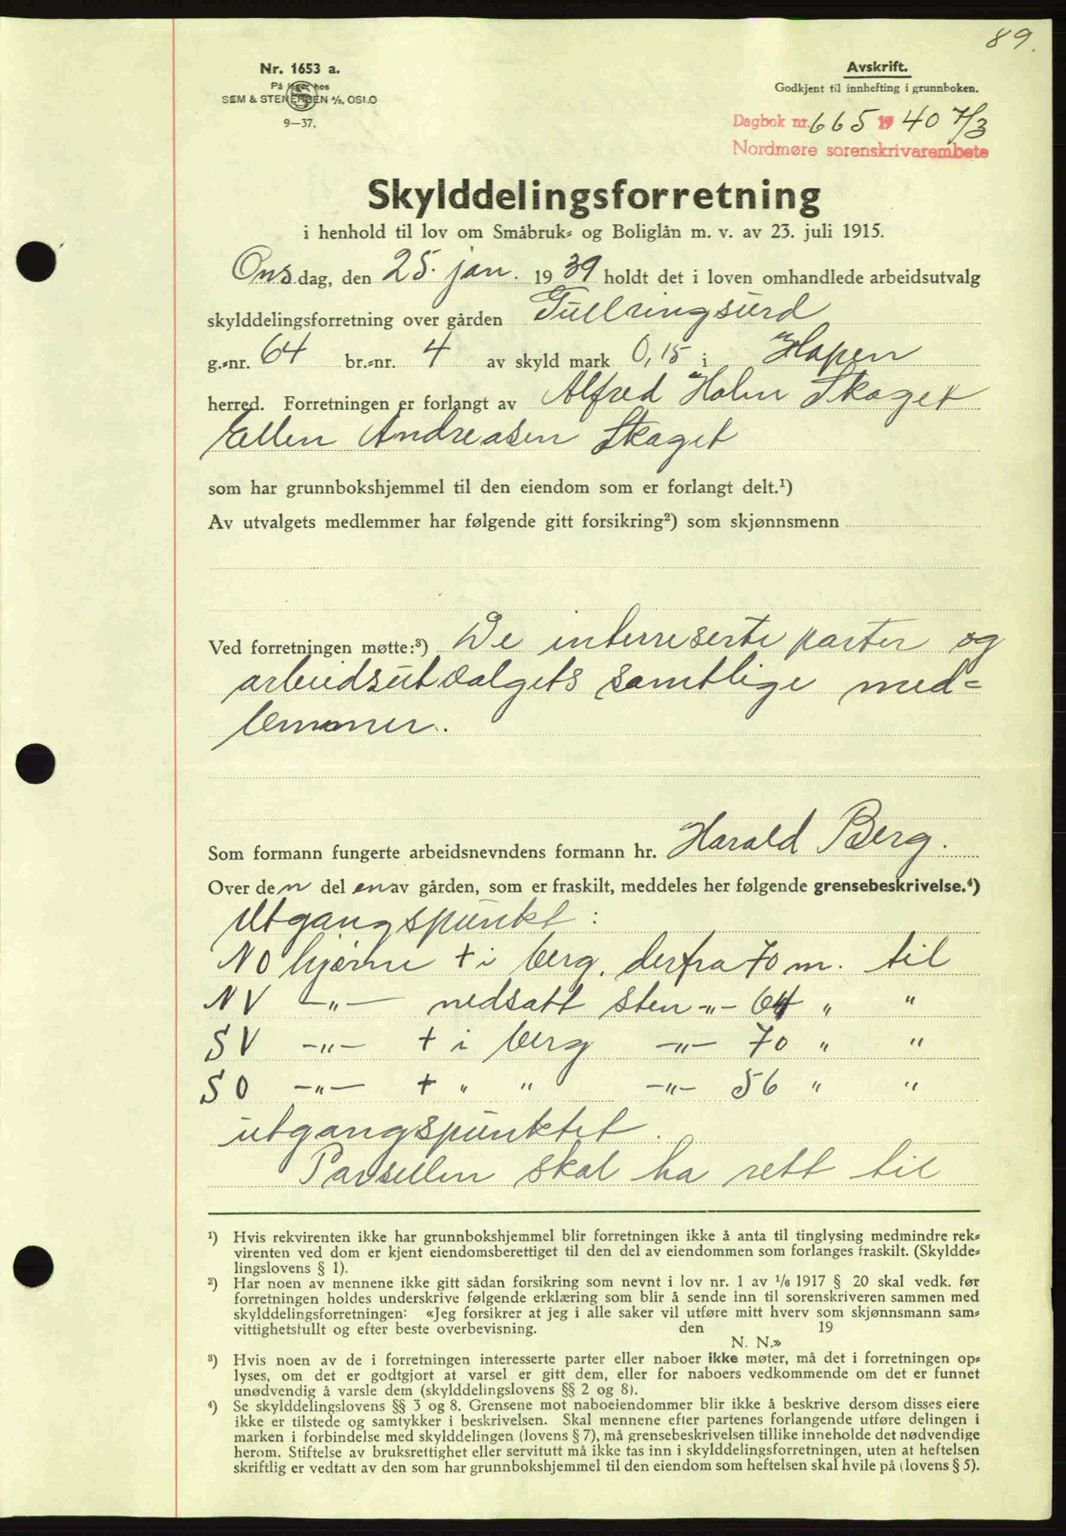 89.
Nr. 1653 a.
På lager hos
SEM & STENERSEN A/S, OSLO
9—37.
Avskrift.
Godkjent til innhefting i grunnboken.
Dagbok nr. 665 19 40 7/3
Nordmøre sorenskrivarembete
Skylddelingsforretning
i henhold til lov om Småbruk- og Boliglån m. v. av 23. juli 1915.
Onsdag, den 25. jan. 1939 holdt det i loven omhandlede arbeidsutvalg
skylddelingsforretning over gården Gullringsurd
g.-nr. 64 br.-nr. 4 av skyld mark 0,15 i Hopen
herred. Forretningen er forlangt av Alfred Holm Skaget
Ellen Andreasen Skaget
som har grunnbokshjemmel til den eiendom som er forlangt delt.¹)
Av utvalgets medlemmer har følgende gitt forsikring²) som skjønnsmenn
Ved forretningen møtte:³) De interreserte parter og
arbeidsutvalgets samtlige med=
lemmer.
Som formann fungerte arbeidsnevndens formann hr. Harald Berg.
Over den del en av gården, som er fraskilt, meddeles her følgende grensebeskrivelse.⁴)
Utgangspunkt:
NO hjørne + i berg. derfra 70 m. til
NV —"— nedsatt sten -"- 64 " "
SV —"— + i berg —"— 70 " "
SO —"— + " " —"— 56 " "
utgangspunktet.
Parsellen skal ha rett til
¹) Hvis rekvirenten ikke har grunnbokshjemmel blir forretningen ikke å anta til tinglysing medmindre rek-
virenten ved dom er kjent eiendomsberettiget til den del av eiendommen som forlanges fraskilt. (Skyldde-
lingslovens § 1).
²) Har noen av mennene ikke gitt sådan forsikring som nevnt i lov nr. 1 av 1/6 1917 § 20 skal vedk. før
forretningen holdes underskrive følgende erklæring som blir å sende inn til sorenskriveren sammen med
skylddelingsforretningen: «Jeg forsikrer at jeg i alle saker vil utføre mitt hverv som skjønnsmann sam-
vittighetsfullt og efter beste overbevisning. den 19
N. N.»
³) Hvis noen av de i forretningen interesserte parter eller naboer ikke møter, må det i forretningen op-
lyses, om det er godtgjort at varsel er gitt dem, eller for naboers vedkommende om det er funnet
unødvendig å varsle dem (skylddelingslovens §§ 2 og 8).
⁴) Se skylddelingslovens §§ 3 og 8. Grensene mot naboeiendommer blir ikke å beskrive dersom disses eiere
ikke er tilstede og samtykker i beskrivelsen. Skal mennene efter partenes forlangende utføre delingen i
marken i forbindelse med skylddelingen (lovens § 7), må grensebeskrivelsen tillike inneholde det nødvendige
herom. Stiftelse av bruksrettighet eller servitutt må ikke tas inn i skylddelingsforretningen, uten at heftelsen
skriftlig er vedtatt av den som har grunnbokshjemmel til den eiendom som heftelsen skal hvile på (lovens § 5).